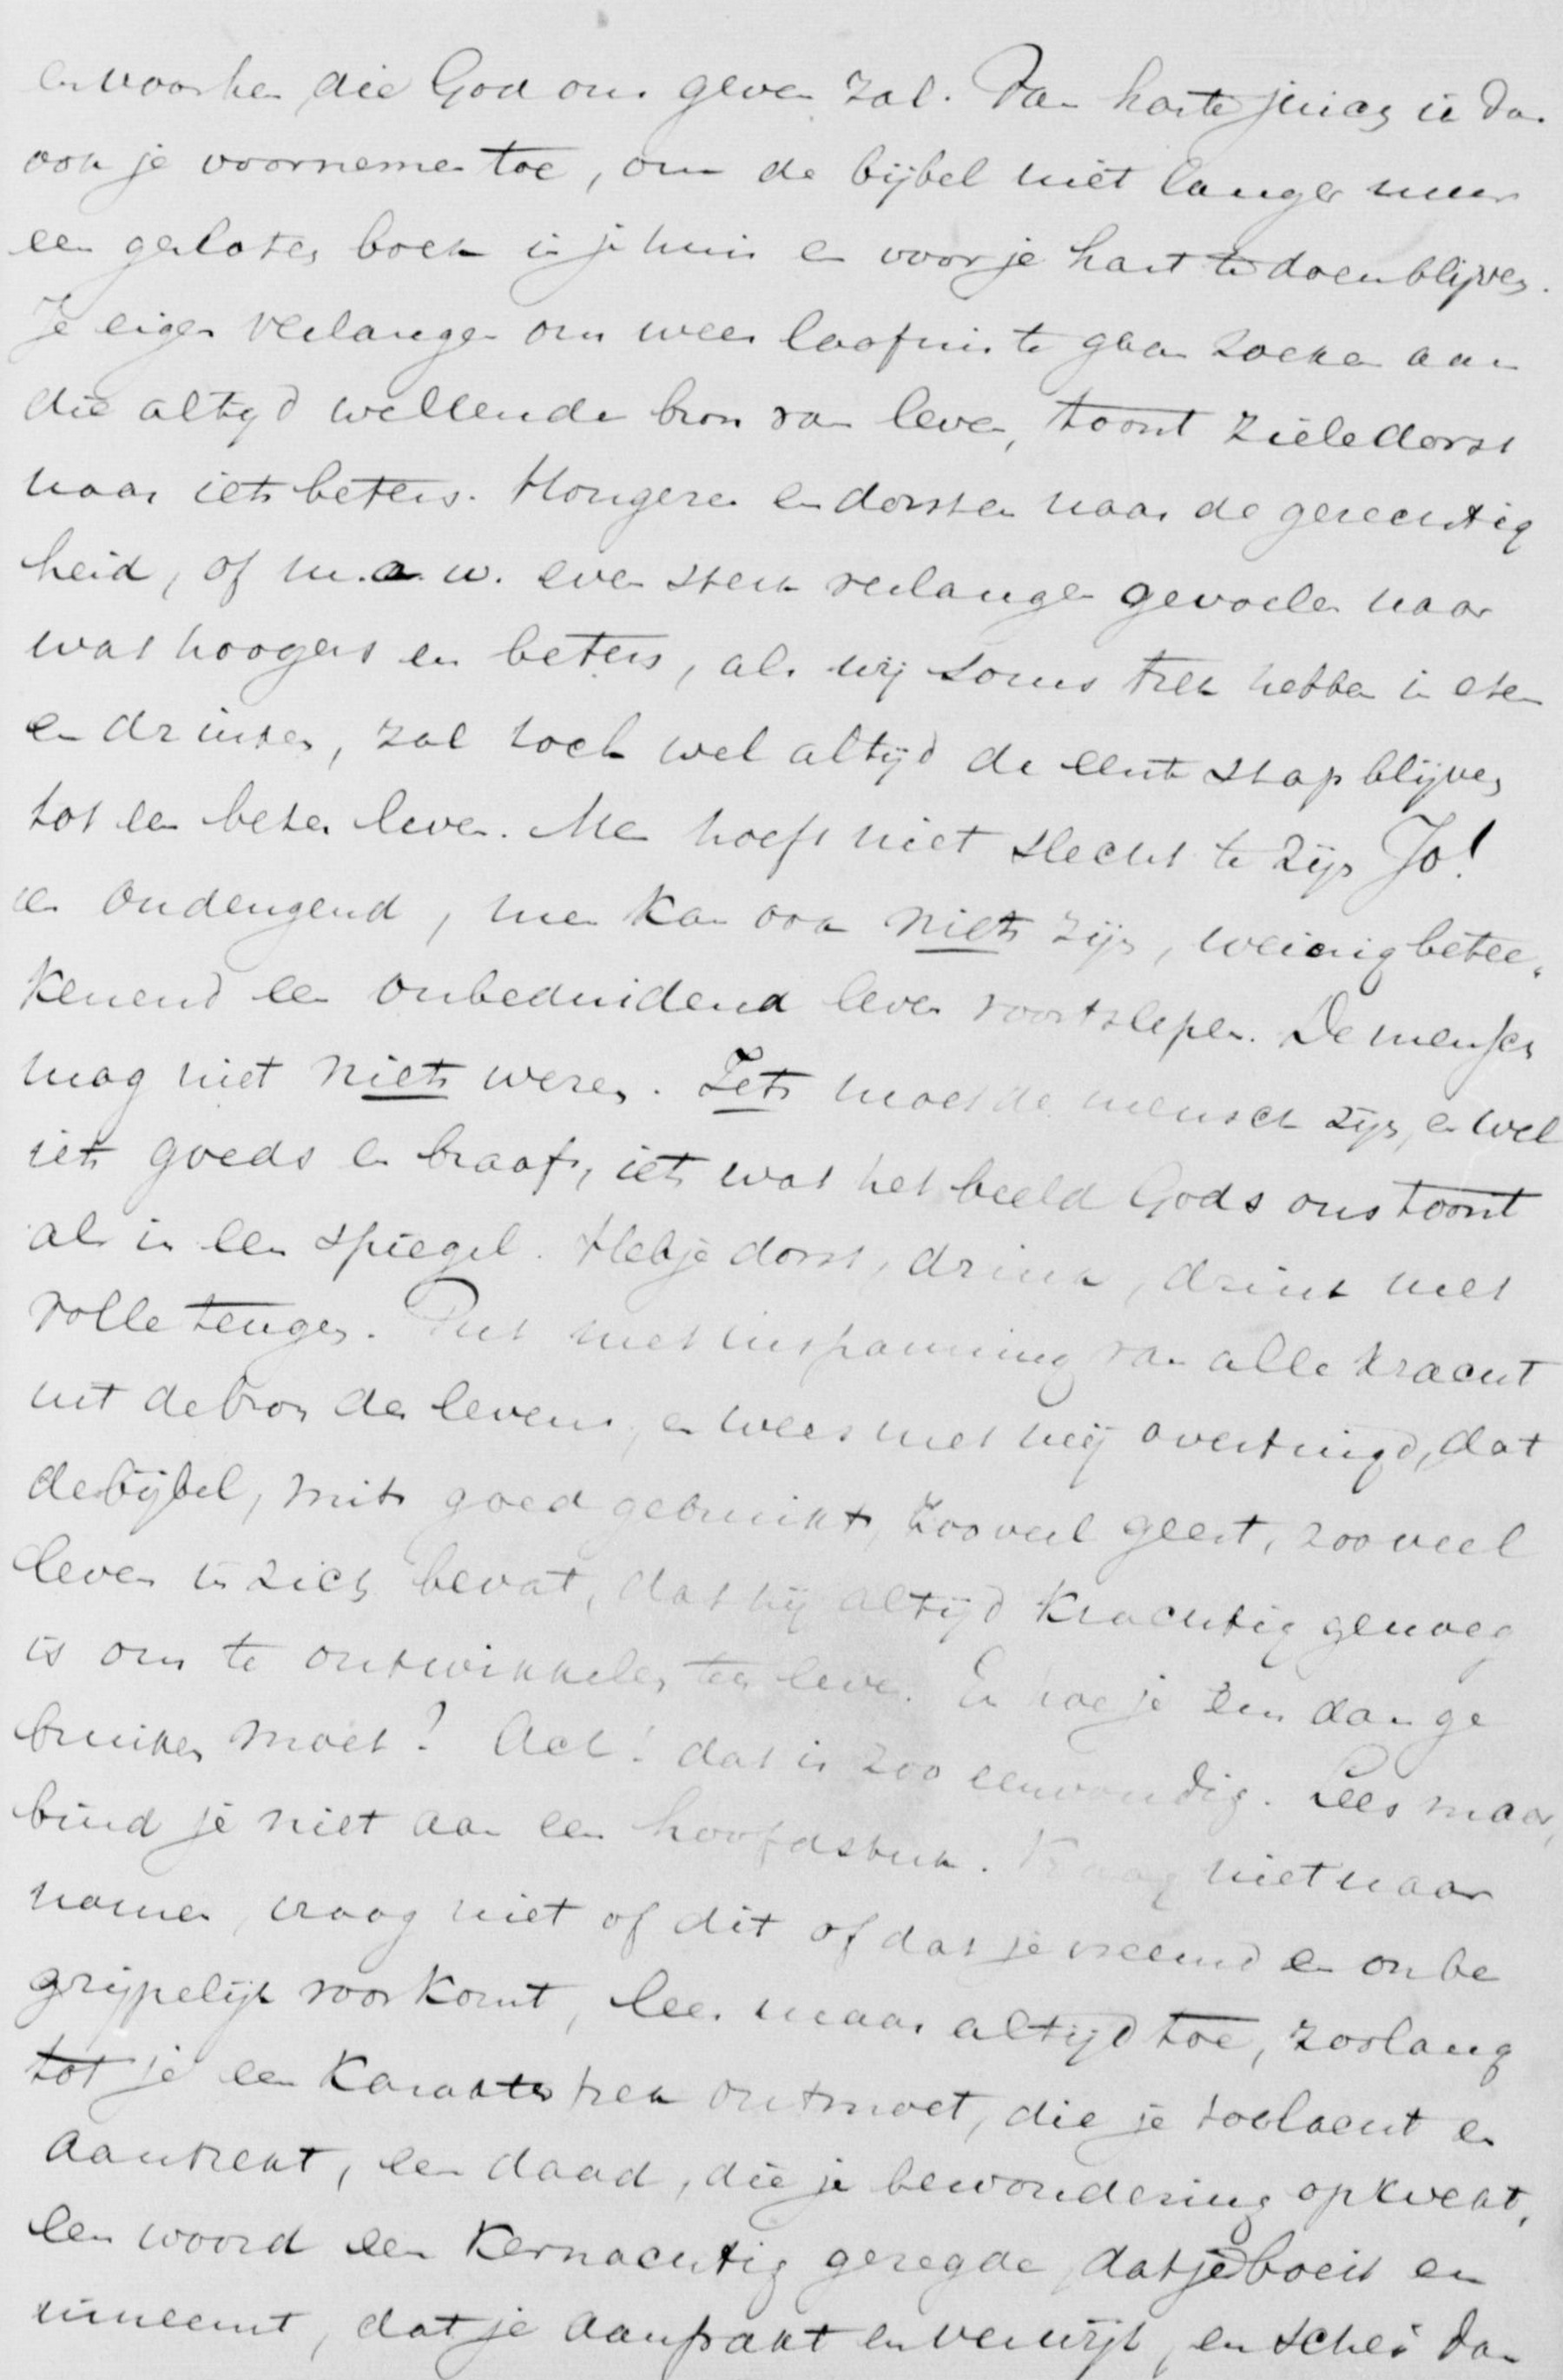 en voor hen die God ons geven zal. Van harte juich ik dan
ook je voornemen toe, om de bijbel niet langer meer
een gesloten boek in je huis en voor je hart te doen blijven.
Je eigen verlangen om weer laafnis te gaan zoeken aan
die altijd wellende bron van leven, toont zieledorst
naar iets beters. Hongeren en dorsten naar de gerechtig
heid, of m.a.w. even sterk verlangen gevoelen naar
wat hoogers en beters, als wij soms trek hebben in eten
en drinken, zal toch wel altijd de eerste stap blijven
tot een beter leven. Men hoeft niet slecht te zijn Jo!
en ondeugend, men kan ook niets zijn, weinig betee-
kenend een onbeduidend leven voortslepen. De mensch
mag niet niets wezen. Iets moet de mensch zijn, en wel
iets goeds en braafs, iets wat het beeld Gods ons toont
als in een spiegel. Heb je dorst, drink, drink met
volle teugen. Put met inspanning van alle kracht
uit de bron des levens, en wees met mij overtuigd, dat
de bijbel, mits goed gebruikt, zooveel geest, zooveel
leven in zich bevat, dat hij altijd krachtig genoeg
is om te ontwikkelen ten leven. En hoe je hem dan ge
bruiken moet? Ach! dat is zoo eenvoudig. Lees maar,
bind je niet aan een hoofdstuk. Vraag niet naar
namen, vraag niet of dit of dat je vreemd en onbe
grijpelijk voorkomt, lees maar altijd toe, zoolang
tot je een karaktertrek ontmoet, die je toelacht en
aantrekt, een daad, die je bewondering opwekt,
een woord een kernachtig gezegde, dat je boeit en
inneemt, dat je aanpakt en verwijt, en schei dan